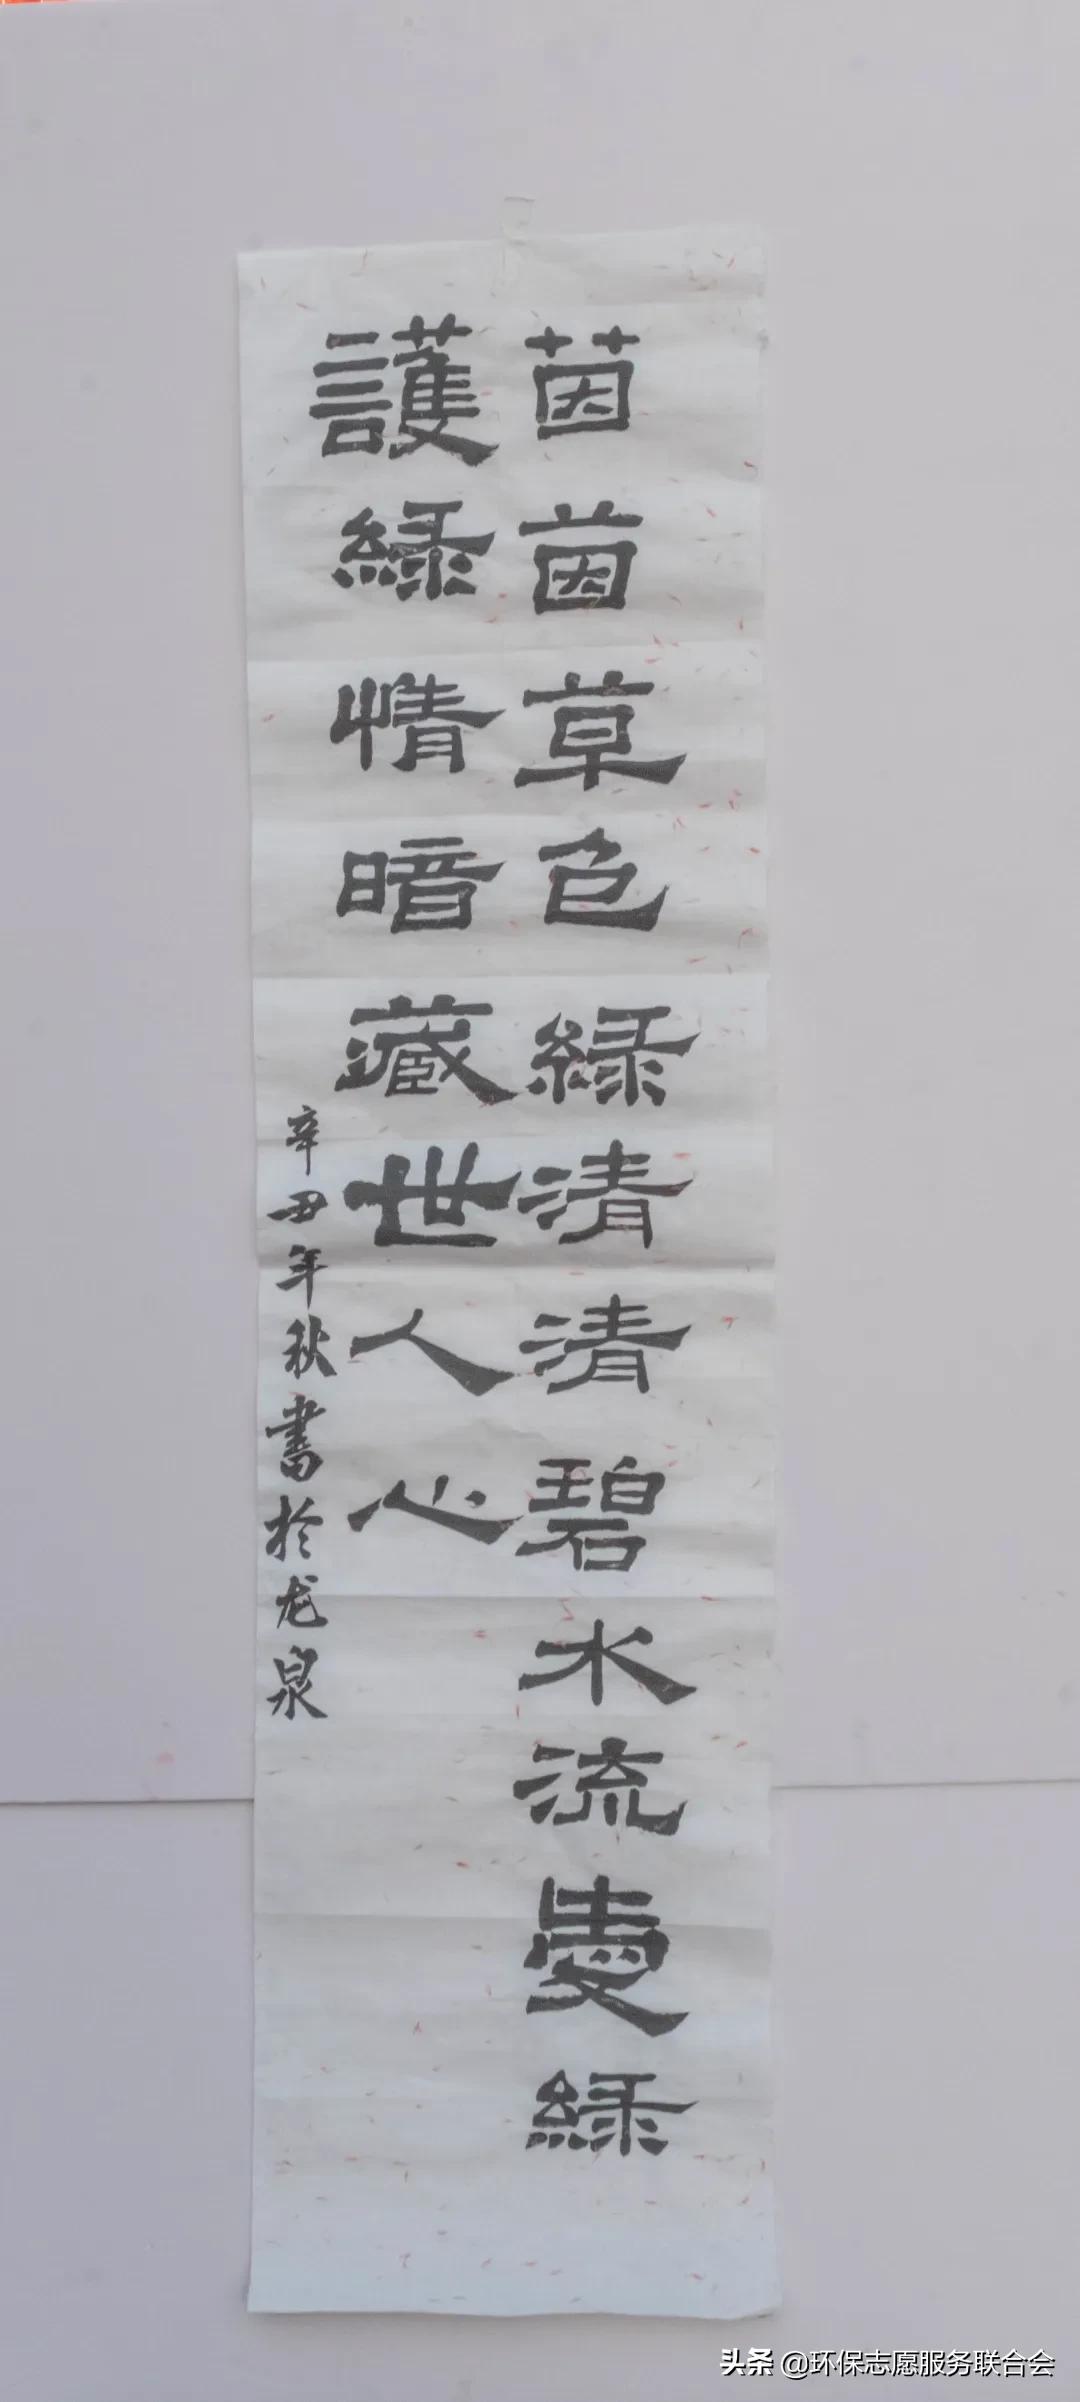 茵茵草色綠清清碧水流愛綠
護綠情暗藏世人心
辛丑年秋書於龙泉
头条 @环保志愿服务联合会